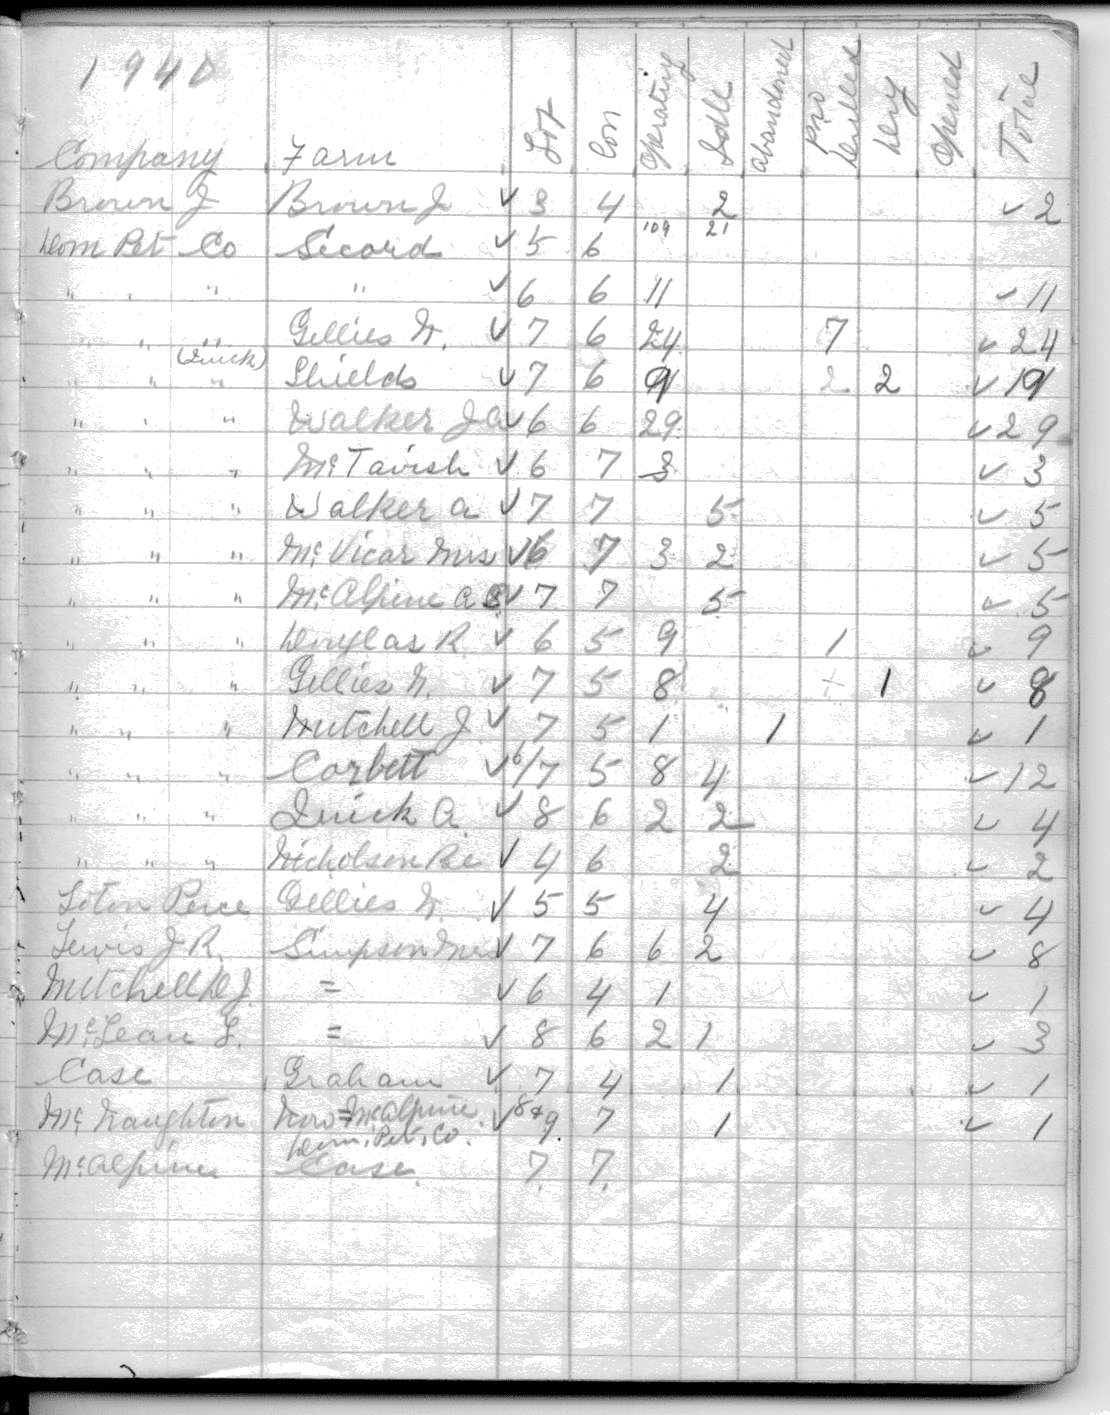 1940
Company Farm Lot Con Operating Idle Abandoned Pro Drilled Dry Opened Total
Brown J Brown J ✓ 3 4 2 ✓ 2
109 21
Dom Pet Co Secord ✓ 5 6
" " " " ✓ 6 6 11 ✓ 11
" " " Gillies N. ✓ 7 6 24 7 ✓ 24
" " (Quick) " Shields ✓ 7 6 9 2 2 ✓ 19
" " " Walker J A ✓ 6 6 29 ✓ 29
" " " McTavish ✓ 6 7 3 ✓ 3
" " " Walker A ✓ 7 7 5 ✓ 5
" " " McVicar Mrs ✓ 6 7 3 2 ✓ 5
" " " McAlpine A ✓ 7 7 5 ✓ 5
" " " Douglas R. ✓ 6 5 9 1 ✓ 9
" " " Gillies N. ✓ 7 5 8 + 1 ✓ 8
" " " Mitchell J ✓ 7 5 1 1 ✓ 1
" " " Corbett ✓ 6/7 5 8 4 ✓ 12
" " " Quick A. ✓ 8 6 2 2 ✓ 4
" " " Nicholson ✓ 4 6 2 ✓ 2
Gillies N. ✓ 5 5 4 ✓ 4
Lewis J R. Simpson ✓ 7 6 6 2 ✓ 8
Mitchell D J. = ✓ 6 4 1 ✓ 1
McLean L. = ✓ 8 6 2 1 ✓ 3
Case Graham ✓ 7 4 1 ✓ 1
McNaughton Now = McAlpine ✓ 8 & 9. 7 1 ✓ 1
Dom. Pet. Co.
McAlpine Case. 7. 7.